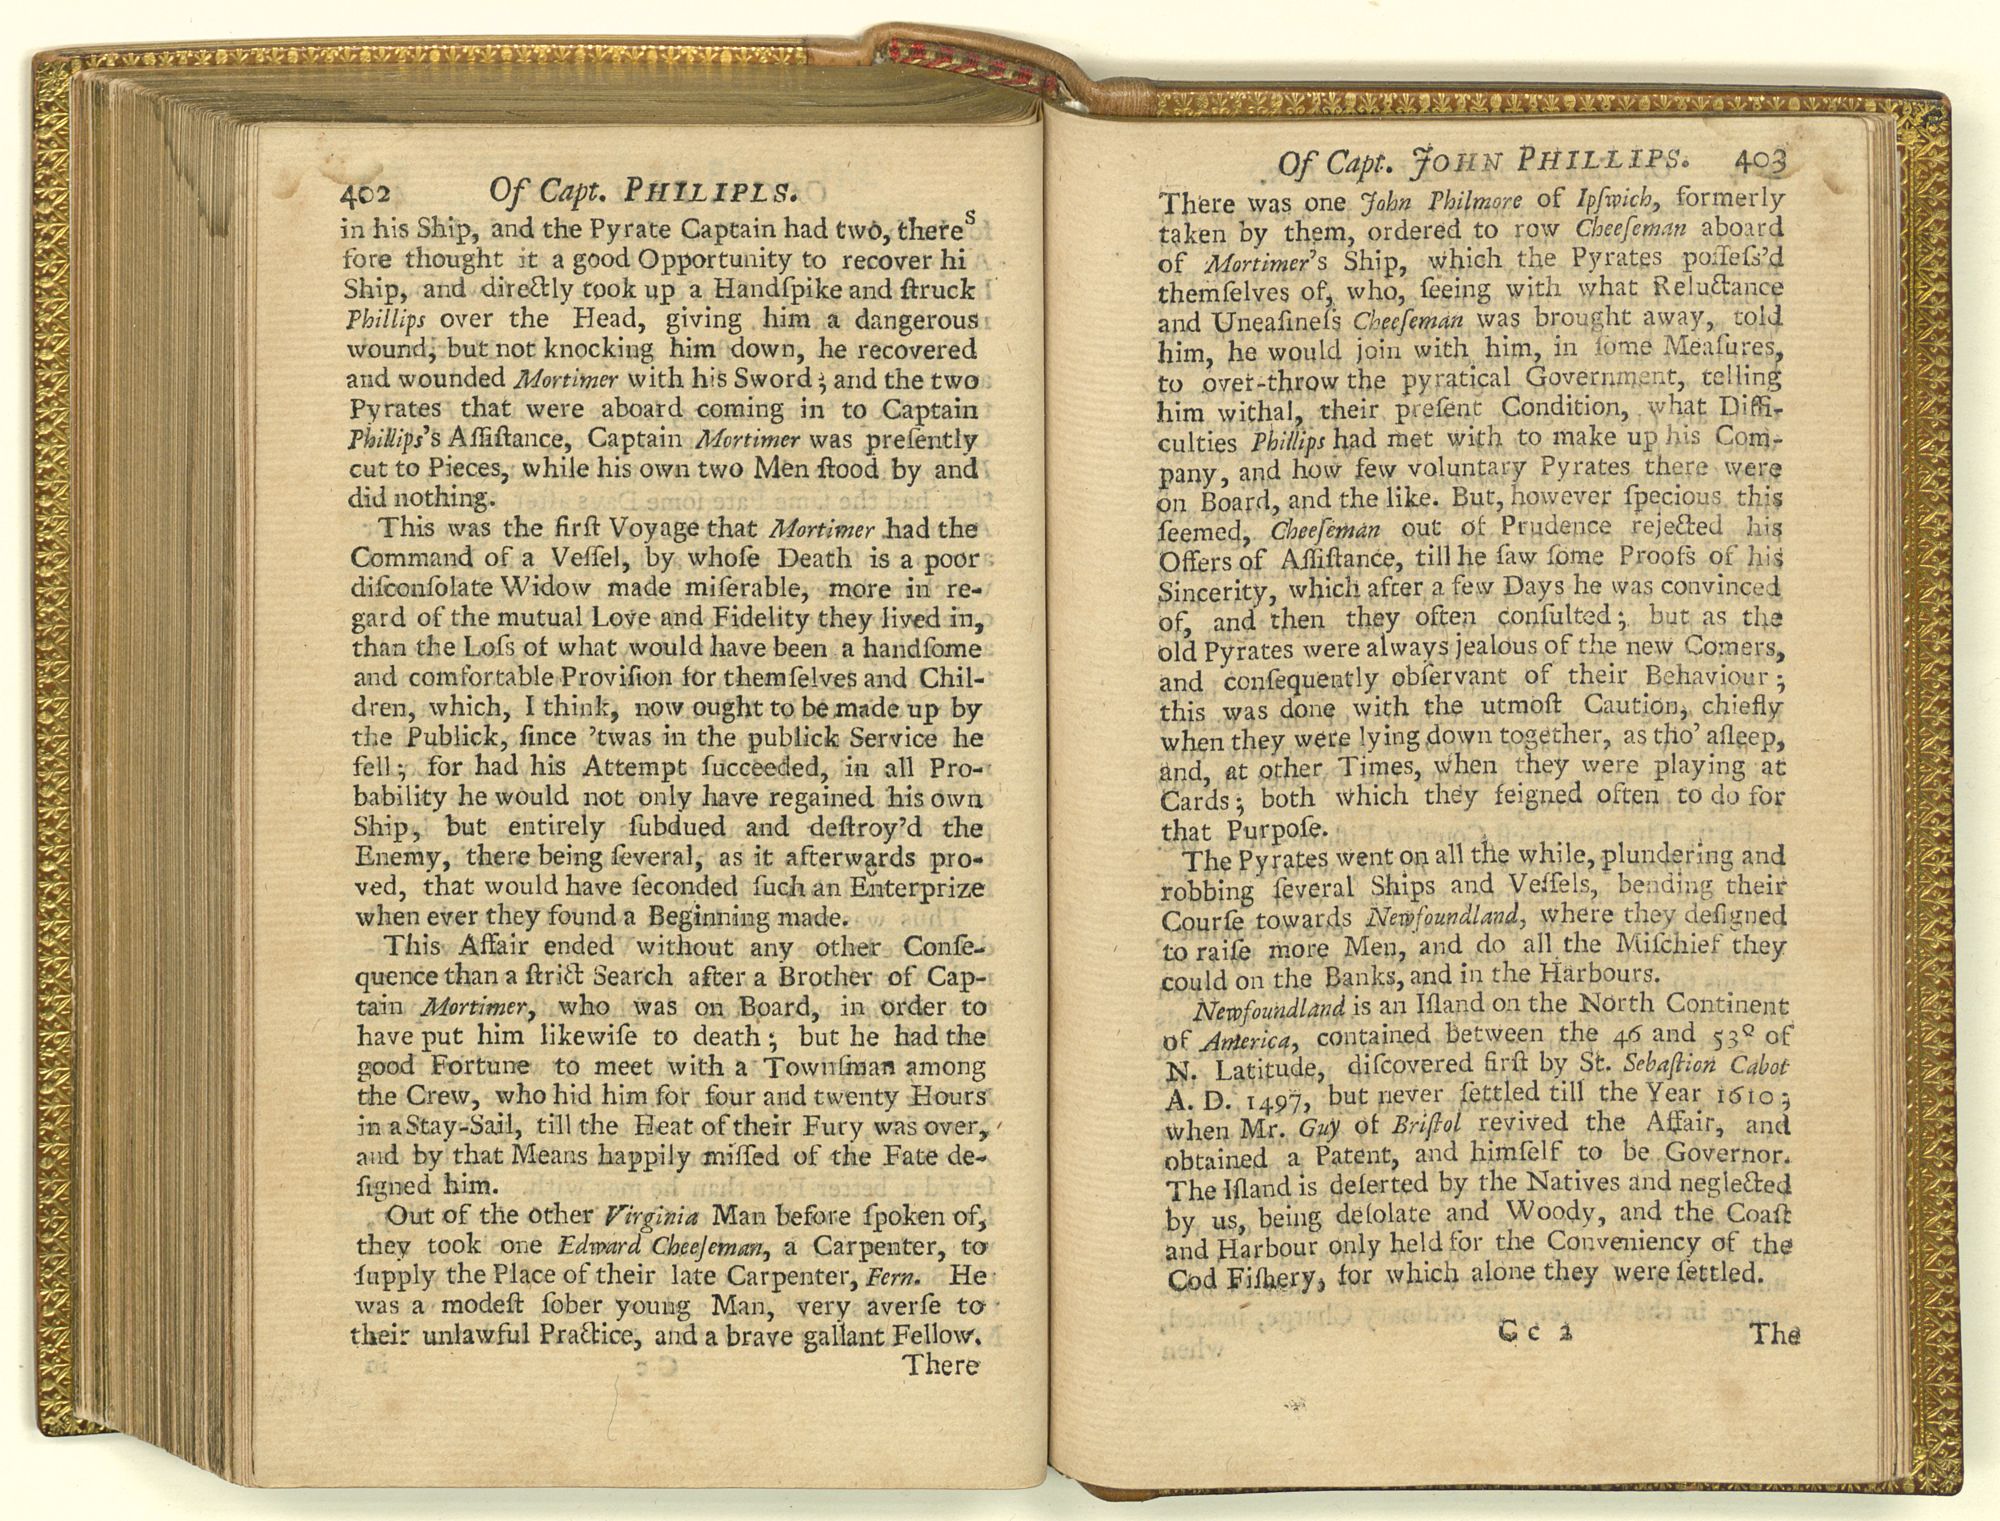 402 Of Capt. PHILIPLS.
in his Ship, and the Pyrate Captain had two, there s
fore thought it a good Opportunity to recover hi
Ship, and directly took up a Handſpike and ſtruck
Phillips over the Head, giving him a dangerous
wound, but not knocking him down, he recovered
and wounded Mortimer with his Sword; and the two
Pyrates that were aboard coming in to Captain
Phillips's Aſſiſtance, Captain Mortimer was preſently
cut to Pieces, while his own two Men ſtood by and
did nothing.
This was the firſt Voyage that Mortimer had the
Command of a Veſſel, by whoſe Death is a poor
diſconſolate Widow made miſerable, more in re-
gard of the mutual Love and Fidelity they lived in,
than the Loſs of what would have been a handſome
and comfortable Proviſion for themſelves and Chil-
dren, which, I think, now ought to be made up by
the Publick, ſince 'twas in the publick Service he
fell; for had his Attempt ſucceeded, in all Pro-
bability he would not only have regained his own
Ship, but entirely ſubdued and deſtroy'd the
Enemy, there being ſeveral, as it afterwards pro-
ved, that would have ſeconded ſuch an Enterprize
when ever they found a Beginning made.
This Affair ended without any other Conſe-
quence than a ſtrict Search after a Brother of Cap-
tain Mortimer, who was on Board, in order to
have put him likewiſe to death; but he had the
good Fortune to meet with a Townſman among
the Crew, who hid him for four and twenty Hours
in a Stay-Sail, till the Heat of their Fury was over,
and by that Means happily miſſed of the Fate de-
ſigned him.
Out of the other Virginia Man before ſpoken of,
they took one Edward Cheeſeman, a Carpenter, to
ſupply the Place of their late Carpenter, Fern. He
was a modeſt ſober young Man, very averſe to
their unlawful Practice, and a brave gallant Fellow.
There
Of Capt. JOHN PHILLIPS. 403
There was one John Philmore of Ipſwich, formerly
taken by them, ordered to row Cheeſeman aboard
of Mortimer's Ship, which the Pyrates poſſeſs'd
themſelves of, who, ſeeing with what Reluctance
and Uneaſineſs Cheeſeman was brought away, told
him, he would join with him, in ſome Meaſures,
to over-throw the pyratical Government, telling
him withal, their preſent Condition, what Diffi-
culties Phillips had met with to make up his Com-
pany, and how few voluntary Pyrates there were
on Board, and the like. But, however ſpecious this
ſeemed, Cheeſeman out of Prudence rejected his
Offers of Aſſiſtance, till he ſaw ſome Proofs of his
Sincerity, which after a few Days he was convinced
of, and then they often conſulted; but as the
old Pyrates were always jealous of the new Comers,
and conſequently obſervant of their Behaviour;
this was done with the utmoſt Caution, chiefly
when they were lying down together, as tho' aſleep,
and, at other Times, when they were playing at
Cards; both which they feigned often to do for
that Purpoſe.
The Pyrates went on all the while, plundering and
robbing ſeveral Ships and Veſſels, bending their
Courſe towards Newfoundland, where they deſigned
to raiſe more Men, and do all the Miſchief they
could on the Banks, and in the Harbours.
Newfoundland is an Iſland on the North Continent
of America, contained between the 46 and 53° of
N. Latitude, diſcovered firſt by St. Sebaſtion Cabot
A. D. 1497, but never ſettled till the Year 1610;
when Mr. Guy of Briſtol revived the Affair, and
obtained a Patent, and himſelf to be Governor.
The Iſland is deſerted by the Natives and neglected
by us, being deſolate and Woody, and the Coaſt
and Harbour only held for the Conveniency of the
Cod Fiſhery, for which alone they were ſettled.
C c 2 The